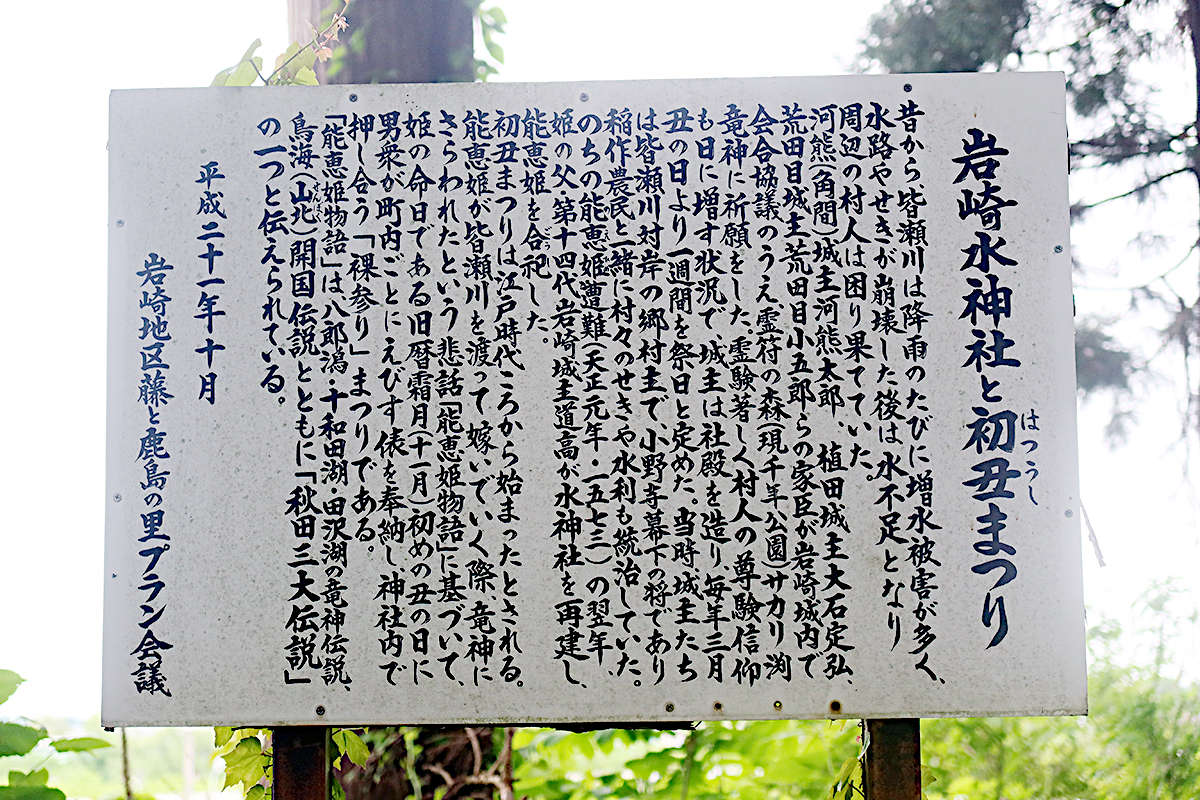 岩崎水神社と初丑まつり
はつうし
昔から皆瀬川は降雨のたびに増水被害が多く、
水路やせきが崩壊した後は、水不足となり
周辺の村人は困り果てていた。
河熊(角間)城主河熊太郎、植田城主大石定弘、
荒田目城主荒田目小五郎らの家臣が岩崎城内で
会合協議のうえ、霊符の森(現千年公園)サカリ渕
竜神に祈願をした。霊験著しく村人の尊験信仰
も日に増す状況で、城主は社殿を造り、毎年三月
丑の日より一週間を祭日と定めた。当時、城主たち
は皆瀬川対岸の郷村主で、小野寺幕下の将であり
稲作農民と一緒に村々のせきや水利も統治していた。
のちの能恵姫遭難(天正元年・一五七三)の翌年、
姫の父第十四代岩崎城主道高が水神社を再建し、
能恵姫を合祀した。
ごうし
初丑まつりは江戸時代ころから始まったとされる。
能恵姫が皆瀬川を渡って嫁いでいく際、竜神に
さらわれたという悲話「能恵姫物語」に基づいて、
姫の命日である旧暦霜月(十一月)初めの丑の日に
男衆が町内ごとにえびす俵を奉納し、神社内で
押し合う「裸参り」まつりである。
「能恵姫物語」は、八郎潟・十和田湖・田沢湖の竜神伝説、
鳥海(山北)開国伝説とともに「秋田三大伝説」
せんぼく
の一つと伝えられている。
平成二十一年十月
岩崎地区藤と鹿島の里プラン会議